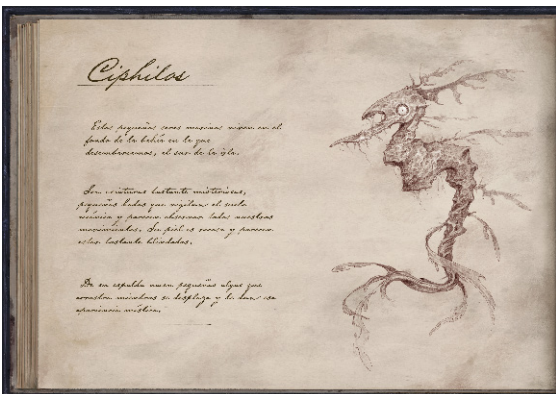 Ciphilos
Estos pequeños seres marinos viven en el
fondo de la bahía en la que
desembarcamos, al sur de la isla.
Son criaturas bastante misteriosas,
pequeñas hadas que vigilan el
y parecen observar todos nuestros
movimientos. Su piel es rocosa y parecen
estar bastante blindados.
De su espalda nacen pequeñas algas que
arrastra mientras se desplaza y le dan esa
apariencia mística.